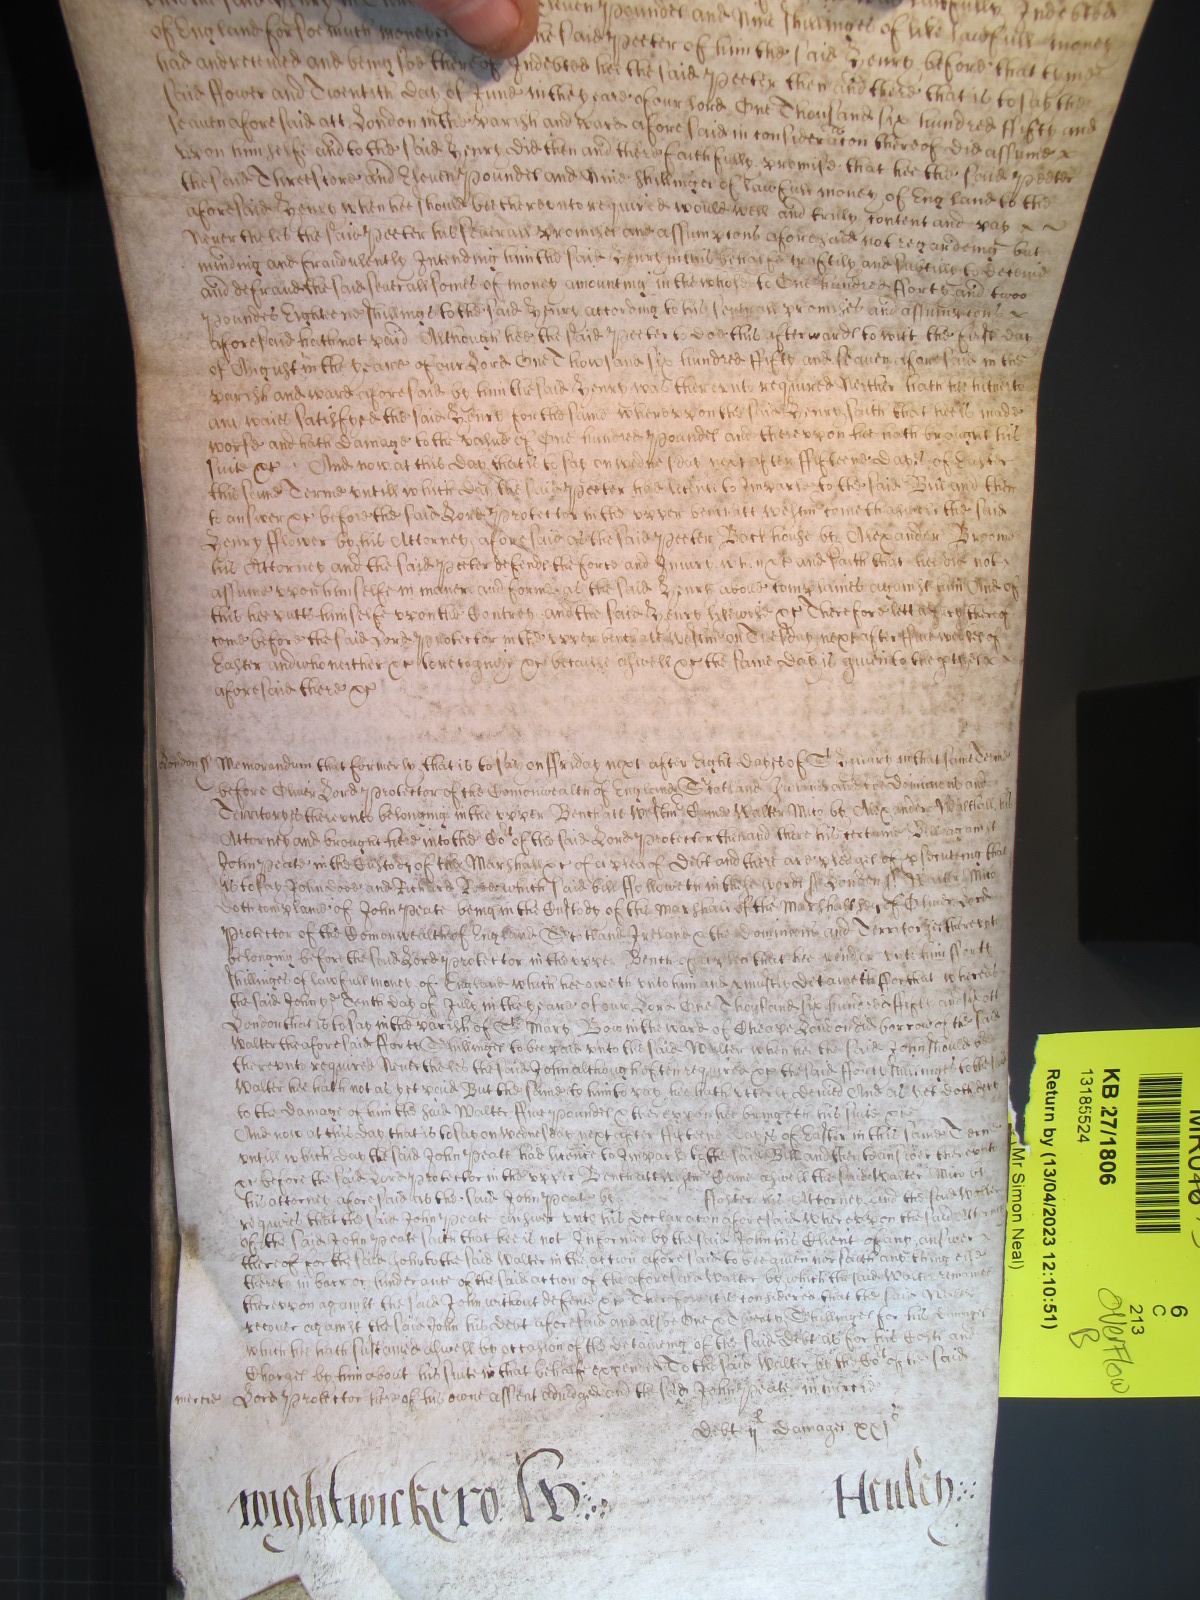 of England for soe much money the said Peeter of him the said Henry before that tyme
had and received and being soe thereof Indebted hee the said Peeter then and there that is to say the
said ffower and Twentith day of June in the yeare of our Lord One Thousand six hundred ffifty and
seaven aforesaid att London in the parish and ward aforesaid in consideracon thereof did assume
upon himselfe and to the said Henry did then and there faithfully promise that hee the said Peeter
the said Threescore and Eleven Poundes and Nine shillinges of lawfull money of England to the
aforesaid Henry when hee should bee thereunto required would well and truly content and pay
Neverthelesse the said Peeter his severall promises and assumpcons aforesaid not regarding but
minding and fraudulently Intending him the said Henry in this behalfe craftily and subtilly to deceive
and defraud the said severall somes of money amounting in the whole to One hundred fforty and twoo
Poundes Eighteene shillings to the said Henry according to his severall promises and assumpcons
aforesaid hath not paid Although hee the said Peeter to doe this afterwards to witt the first day
of August in the yeare of our Lord One Thowsand six hundred ffifty and seaven aforesaid in the
parish and ward aforesaid by him the said Henry was thereunto required Neither hath hee hitherto
any waies satisfyed the said Henry for the same whereupon the said Henry saith that hee is made
worse and hath damage to the value of One hundred Poundes and thereupon hee hath brought his
suite &c And now at this day that is to say on wednesday next after ffifteene dayes of Easter
this same Terme untill which day the said Peeter had licence to Imparle to the said Bill and then
to answer &c before the said Lord Protector in the upper bench att Westm come aswell the said
Henry fflower by his Attorney aforesaid as the said Peeter Backhouse by Alexander Broome
his Attorney and the said Peeter defendes the force and Injury when &c and saith that hee did not
assume upon himselfe in maner and forme as the said Henry above complaines against him And of
this hee putts himselfe upon the Contrey and the said Henry likewise &c Therefore lett a Jury thereof
come before the said Lord Protector in the upper bench att Westm on Tuesday next after ffive weekes of
Easter and who neither &c to recognize &c because aswell &c the same day is given to the partyes
aforesaid there &c
London ss Memorandum that formerly that is to say on ffriday next after Eight dayes of St Hillary in that same Terme
before Oliver Lord Protector of the Comonwealth of England Scotland Ireland and the Dominions and
Territoryes thereunto belonging in the upper Bench att Westm Came Walter Mico by Alexander Walthall his
Attorney and brought here into the Cot of the said Lord Protector then and there his certaine Bill against
John Peate in the Custody of the Marshall &c of a plea of Debt and there are pledges of prosecuting that
is to say John Doe and Richard Roe which said bill ffolloweth in these wordes ss London ss Walter Mico
doth complaine of John Peate being in the Custody of the Marshall of the Marshallsey of Oliver Lord
Protector of the Comonwealth of England Scotland Ireland & the Dominions and Territoryes thereunto
belonging before the said Lord Protector in the upper Bench of a plea that hee render unto him fforty
shillinges of lawfull money of England which hee oweth unto him and unjustly detaineth ffor that whereas
the said John ye Tenth day of July in the yeare of our Lord One Thousand six hundred ffifty and six att
London that is to say in the parish of St Mary Bow in the ward of Cheape London did borrow of the said
Walter the aforesaid fforty shillinges to bee paid unto the said Walter when hee the said John should bee
thereunto required Neverthelesse the said John although often required &c the said fforty shillinges to the said
Walter hee hath not as yet paid But the same to him to pay hee hath utterly denied And as yet doth deny
to the damage of him the said Walter ffive Poundes & thereupon hee bringeth his suite &c
And now at this day that is to say on Wednesday next after ffifteene dayes of Easter in this same Terme
untill which day the said John Peate had licence to Imparle to the said Bill and then to answer thereunto
&c before the said Lord Protector in the upper Bench att Westm Came aswell the said Walter Mico by
his attorney aforesaid as the said John Peate by ffoster his Attorney and the said Walter
requires that the said John Peate answer unto his declaracon aforesaid Whereupon the said Attorney
of the said John Peate saith that hee is not Informed by the said John his Client of any answer
thereof for the said John to the said Walter in the action aforesaid to bee given nor saith any thing else
thereto in barr or hinderance of the said action of the aforesaid Walter by which the said Walter remaines
thereupon against the said John without defence &c Therefore it is considered that the said Walter
recover against the said John his debt aforesaid and allsoe One & Twenty shillinges for his damages
which hee hath sustained aswell by occasion of the detaineing of the said debt as for his Costs and
Charges by him about his suite in that behalfe expended To the said Walter by the Cot of the said
mercie Lord Protector here of his owne assent adjudged and the said John Peate in mercie
Debt ijl Damages xxjs
Wightwicke ro
Henley
MR
KB 27/1806
13185524
Return by (13/04/2023 12:10:51)
(Mr Simon Neal)
6
C
213
Overflow
B